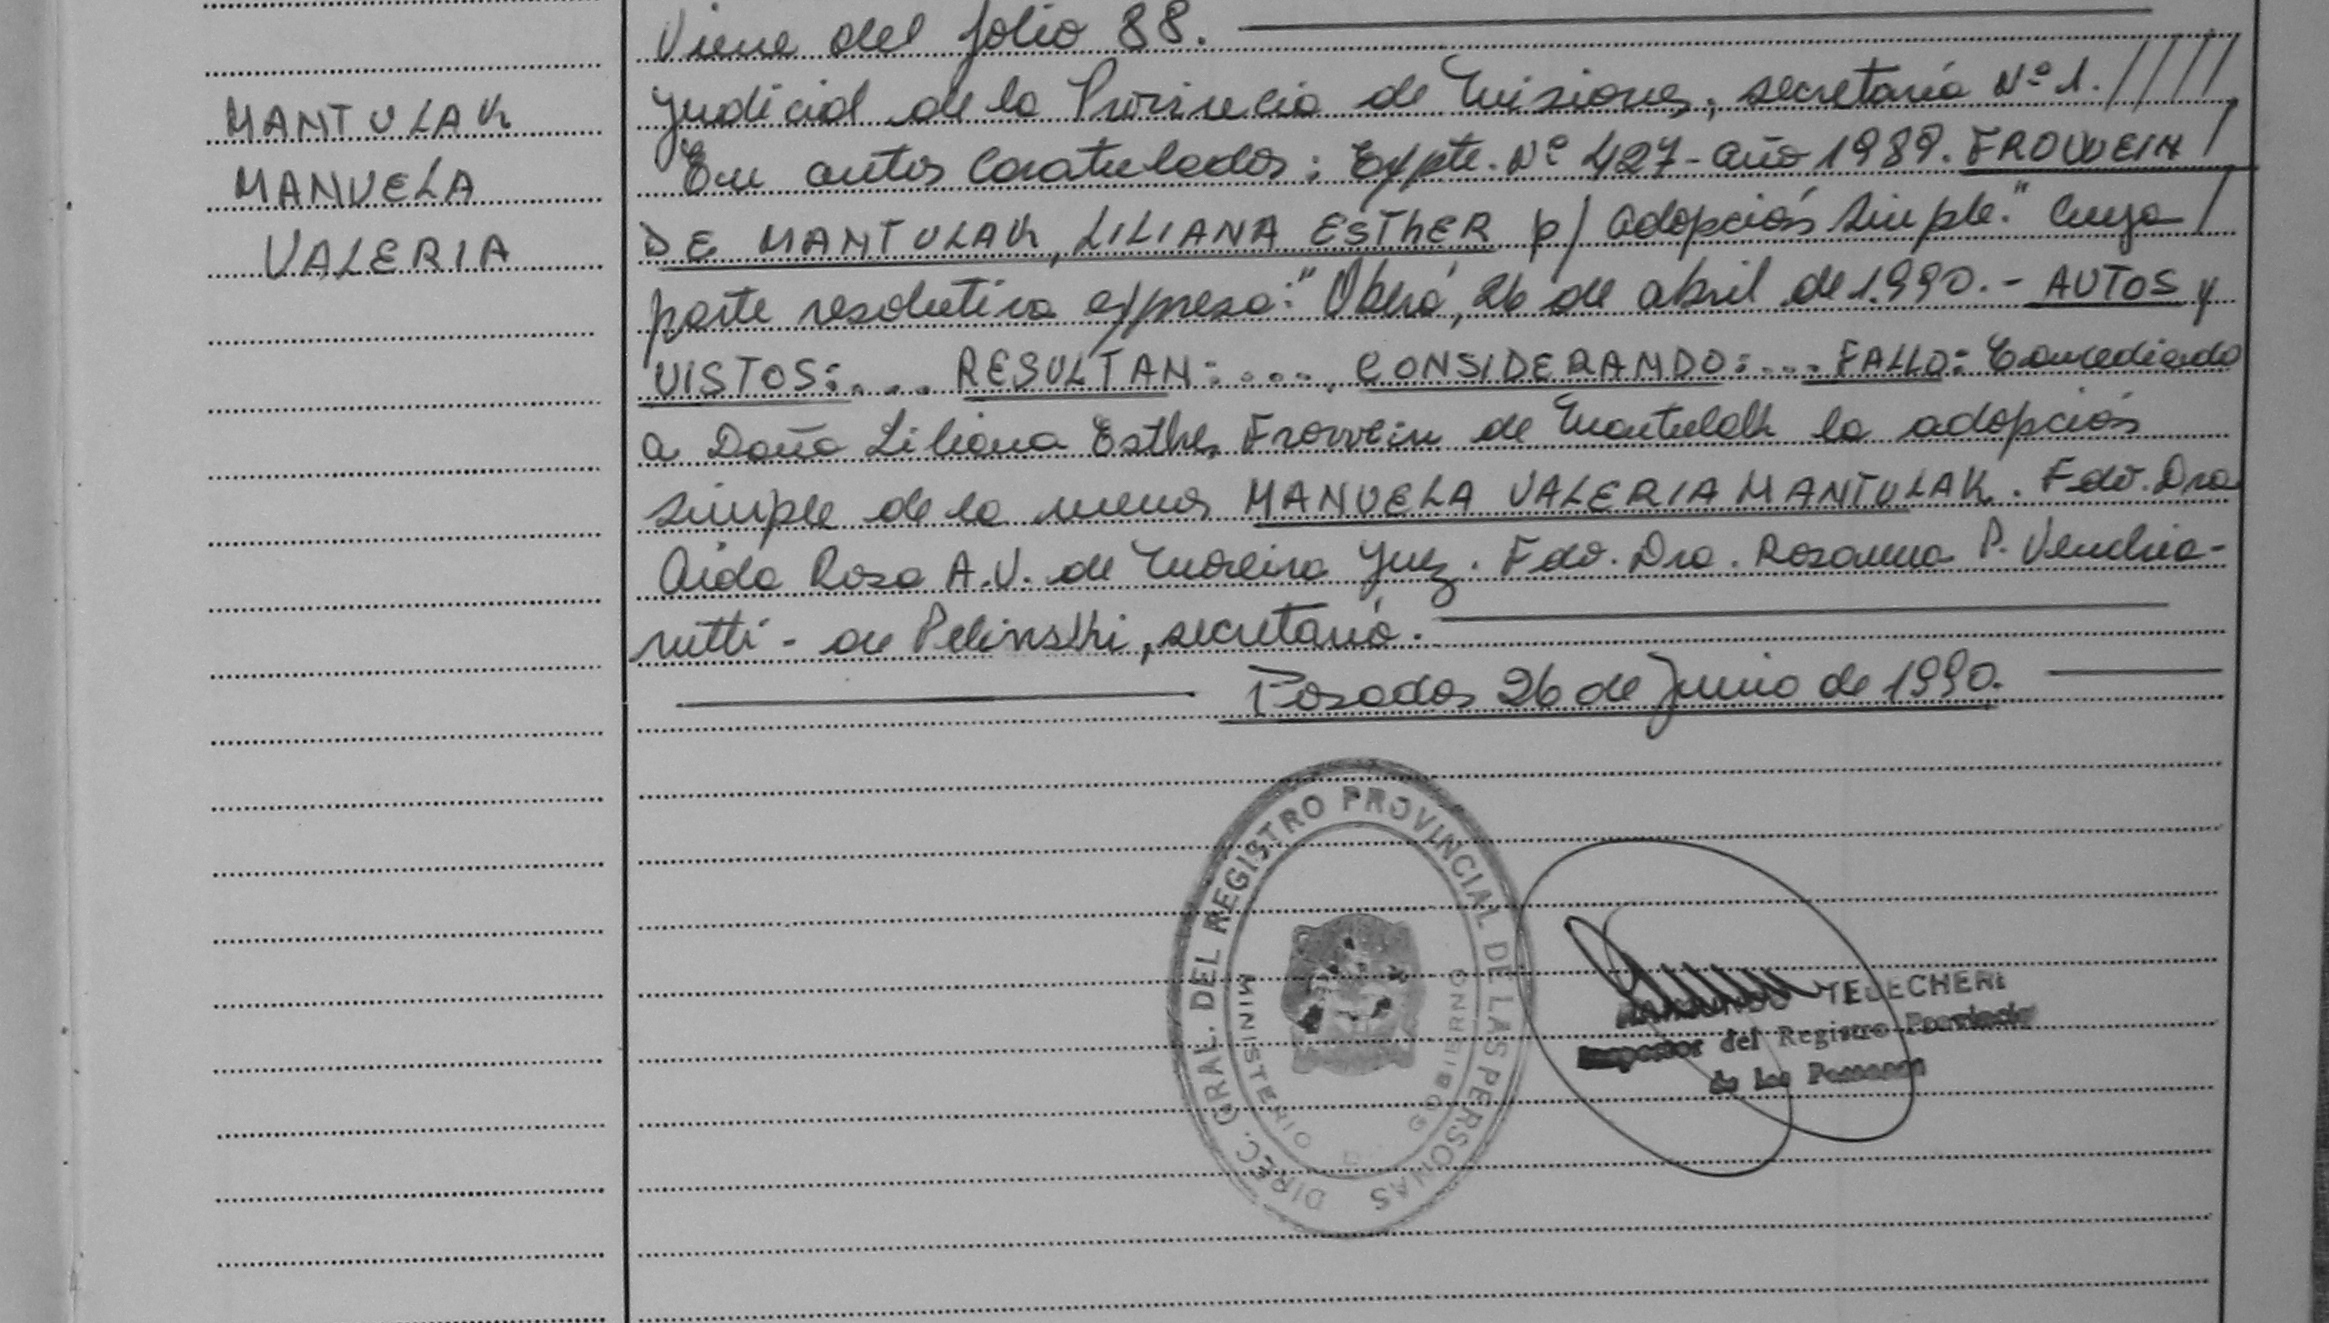 Viene del folio 88.
MANTULAK
MANUELA
VALERIA
Judicial de la Provincia de Misiones, secretaría Nº 1. / / / /
En autos Caratulados: Expte. Nº 427 - año 1989. FROWEIN /
DE MANTULAK, LILIANA ESTHER p/ adopción Simple." Cuya /
parte resolutiva expresa: "Oberá, 26 de abril de 1.990.- AUTOS y
VISTOS: .... RESULTAN: .... CONSIDERANDO: ... FALLO: Concediendo
a Doña Liliana Esther Frowein de Mantulak la adopción
simple de la menor MANUELA VALERIA MANTULAK. Fdo. Dra
Aida Rosa A.V. de Moreira Juez. Fdo. Dra. Rosanna P. Venchia-
rutti - de Pelinski, secretaria.
Posadas 26 de Junio de 1990.
DIREC. GRAL. DEL REGISTRO PROVINCIAL DE LAS PERSONAS
MINISTERIO D. GOBIERNO
RAIMUNDO
Inspector del Registro Provincial
de las Personas